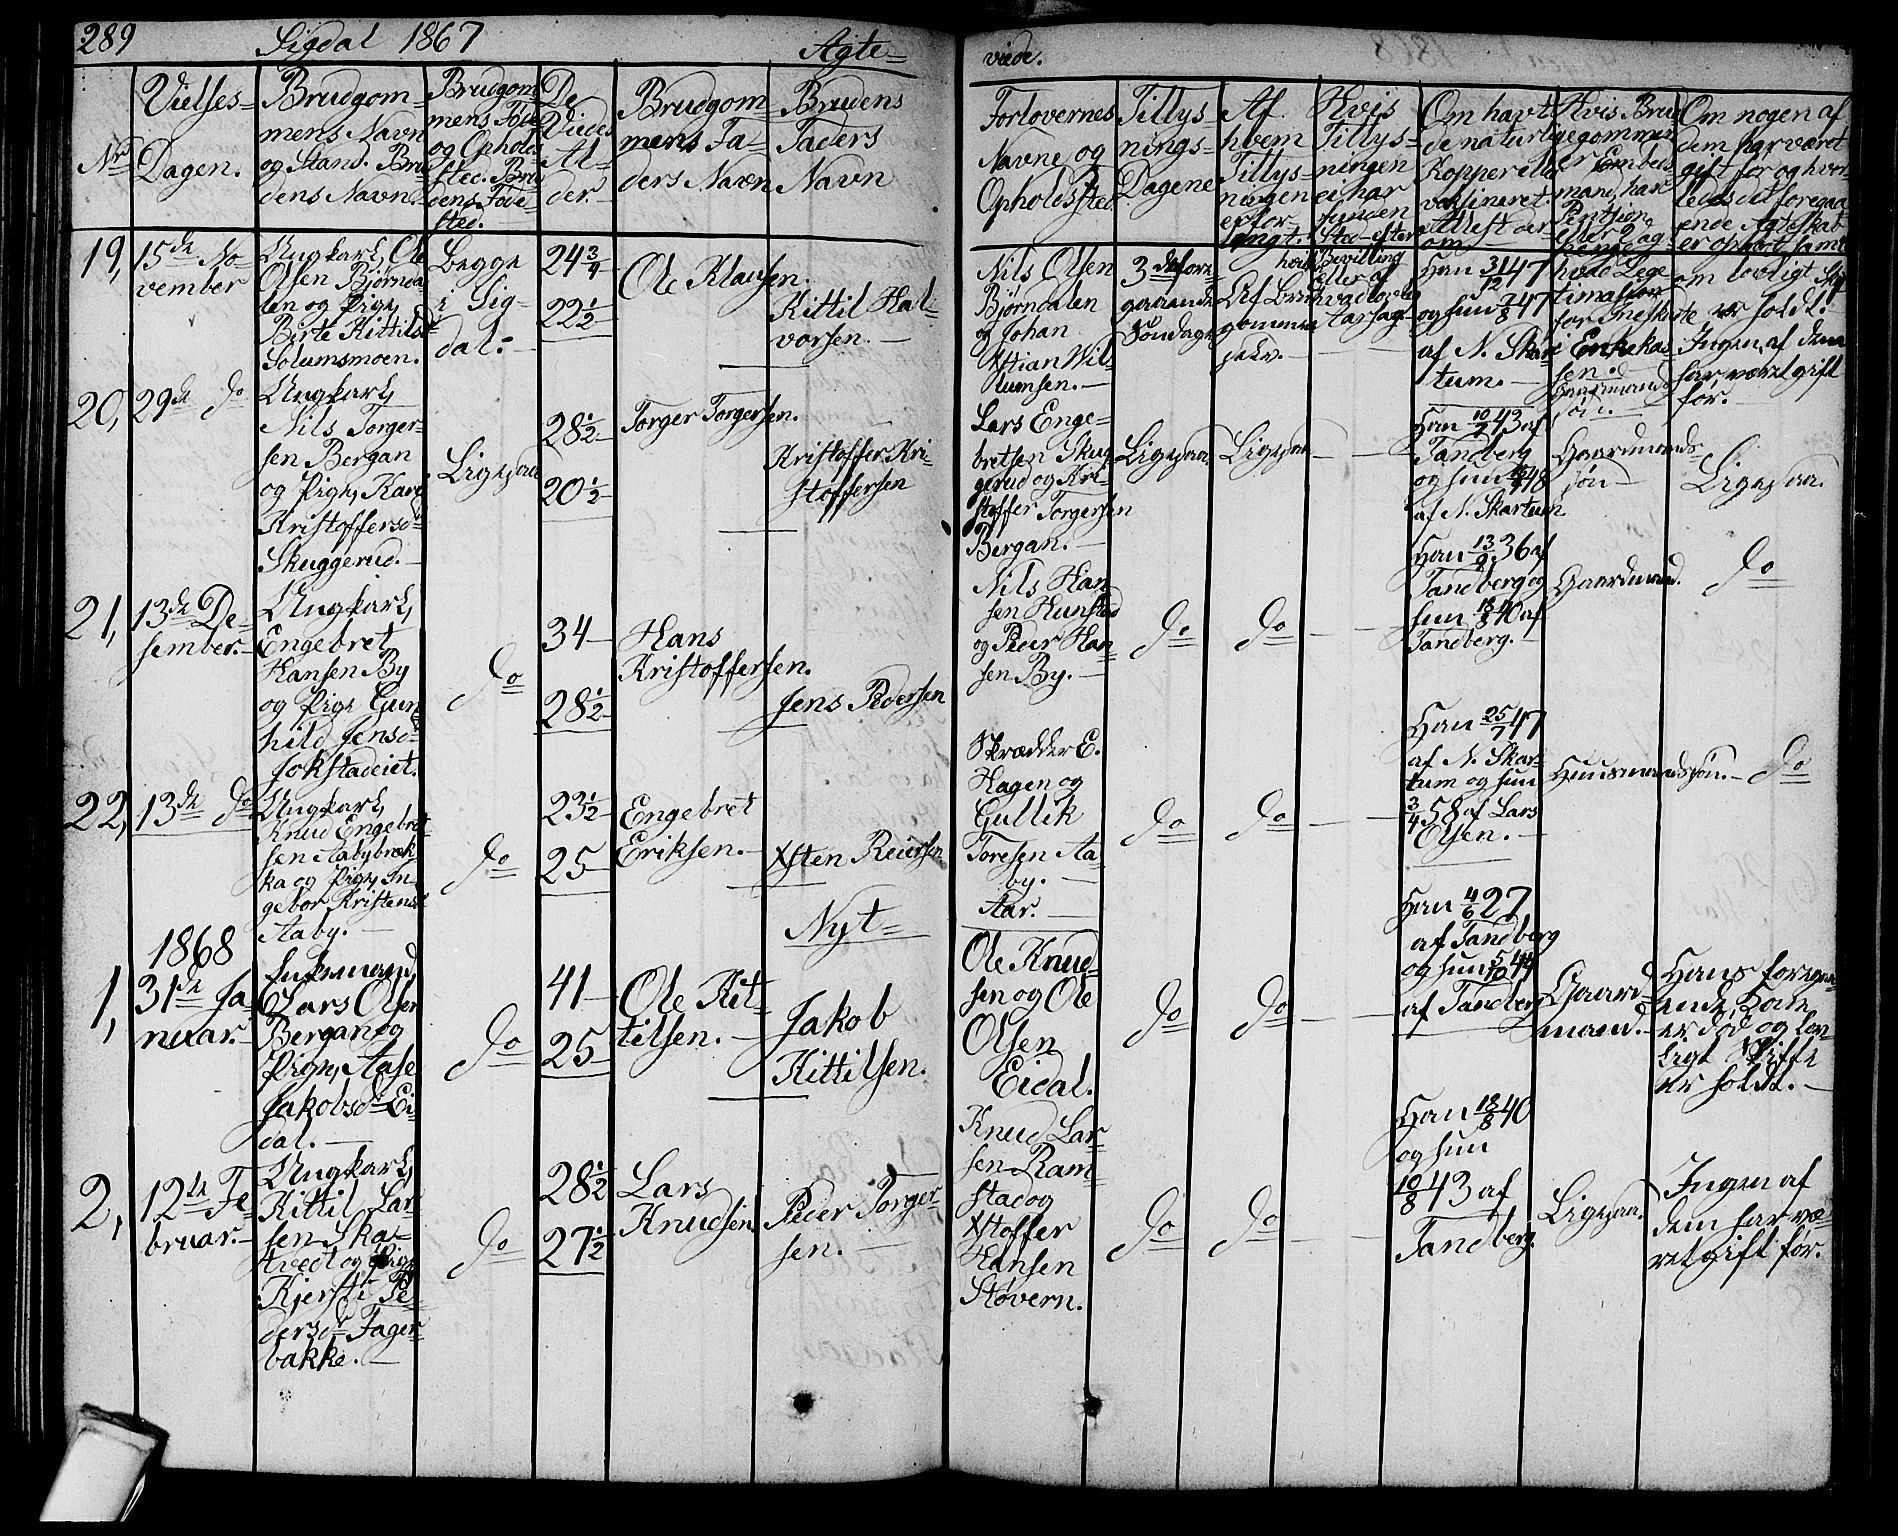 289 Sigdal 1867 Ægte=
viede.
Nr
Vielses=
Dagen.
Brudgom=
mens Navn
og Stand. Bru
dens Navn.
Brudgom
mens Føde
og Opholds
sted. Bru
dens Føde
sted.
De
Viedes
Al=
der.
Brudgom=
mens Fa=
ders Navn
Brudens
Faders
Navn
Forlovernes
Navne og
Opholdssted.
Tillys=
nings=
Dagene
Af
hvem
Tillys=
ningen
er for=
langt.
Hvis
Tillys=
ningen
ei har
funden
Sted efter
hvis Bevilling
eller af
Om havt
de naturlige
Kopper eller
vaksineret.
Attest der
om
Hvis Bru
gommen
er Embeds
mand, har
Om nogen af
dem har været
gift før og hvor=
ledes det foregaa
ende Ægteskab
er ophørt samt
19,
15de No=
vember
Ungkarl, Ole
Olsen Bjørnda
len og Pige,
Birte Kittilsdr
Solumsmoen.
Begge
i Sig=
dal.=
24 3/4
22 1/2
Ole Klausen.
Kittil Hal=
vorsen. —
Nils Olsen
Bjørndalen
og Johan
Kstian Wil=
lumsen. —
3de fore=
gaaende
Søndage
Af Brud
gommen
selv.
Han 31/12 47
og hun 7/8 47
af N. Skar
tum. —
om lovligt Skif
te er holdt.
Ingen af dem
har været gift
før.
20,
29de do
Ungkarl,
Nils Torger=
sen Bergan
og Pige, Kari
Kristoffersdr
Skuggerud. —
Ligesaa
28 1/2
20 1/2
Torger Torgersen.
Kristoffer Kri=
stoffersen
Lars Enge=
bretsen Skug
gerud og Kri=
stoffer Torgersen
Bergan. —
Ligesaa
Ligesaa
Tandberg
af N. Skartum.
Gaardmands=
søn —
Ligesaa.
21,
13de De=
sember. —
Ungkarl,
Engebret
Hansen By
og Pige Gun
hild Jensdr
Jokstadeiet.
do
34
28 1/2
Hans
Kristoffersen.
Jens Pedersen
Nils Han
sen Hunstad
og Peder Han=
sen By. —
do
do
Han 13/9 36 af
Tandberg og
hun 18/8 40 af
Tandberg. —
Gaardmand.
do
22,
13de do
Ungkarl,
Knud Engebret
sen Aabybræk=
ka og Pige, In=
gebor Kristensdr
Aaby. —
do
23 1/2
25
Engebret
Eriksen. —
Xsten Reiersen
Skrædder E.
Hagen og
Gullik
Toresen Aa=
by. —
do
do
Han 25/7 47
af N. Skar=
tum og hun
3/4 58 af Lars
Olsen. —
Huusmandssøn. —
do
1868
Nyt=
Aar. —
1,
31de Ja=
nuar. —
Enkemand,
Lars Olsen
Bergan og
Pige, Aase
Jakobsdr Ei=
dal. —
do
41
25
Ole Kit=
tilsen. —
Jakob
Kittilsen.
Ole Knud=
sen og Ole
Olsen
Eidal.
do
do
Han 4/6 27
af Tandberg
og hun
af Tandberg
Gaard=
mand. —
Hans forrige
er død og lov=
ligt Skifte
er holdt. —
2,
12te Fe=
bruar. —
Ungkarl,
Kittil Lar=
sen Ska=
tvedt og Pige
Kjersti Pe=
dersdr Fager=
bakke. —
do
28 1/2
27 1/2
Lars
Knudsen
Peder Torger=
sen. —
Knud Lar
sen Ram=
stad og
Xstoffer
Hansen
Støvern.
do
do
Han 18/8 40
og hun
10/8 43 af
Tandberg.
Ligesaa.
Ingen af
dem har væ=
ret gift før.